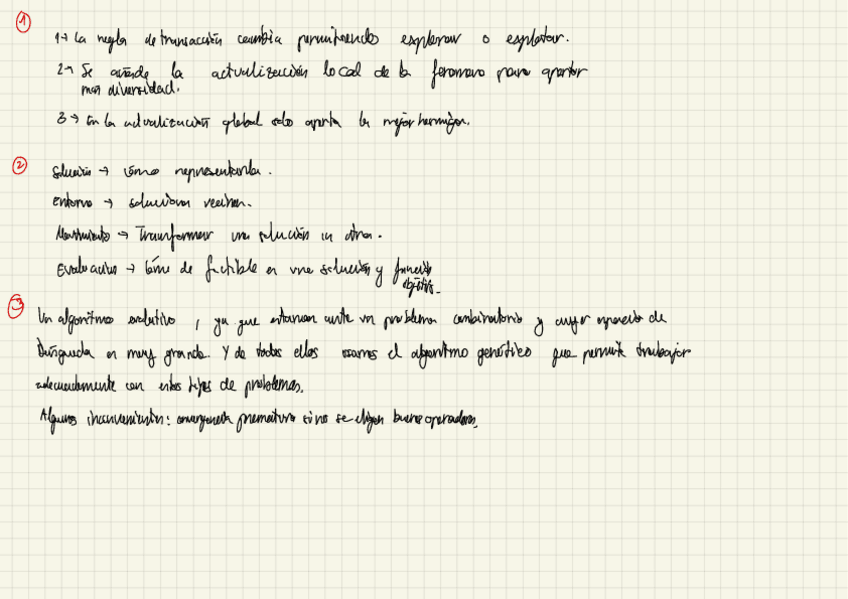 1
1→ La regla de transacción cambia permitiendo explorar o explotar.
2→ Se añade la actualización local de la feromona para aportar
mas diversidad.
3→ En la actualización global solo aporta la mejor hormiga.
2
Solución → cómo representarla.
Entorno → soluciones vecinas.
Movimiento → Transformar una solución in otra.
Evaluación → cómo de factible es una solución y función
objetivo.
3
Un algoritmo evolutivo, ya que estamos ante un problema combinatorio y cuyo espacio de
búsqueda es muy grande. Y de todos ellos usamos el algoritmo genético que permite trabajar
adecuadamente con estos tipos de problemas.
Algunos inconvenientes: convergencia prematura si no se eligen buenos operadores.